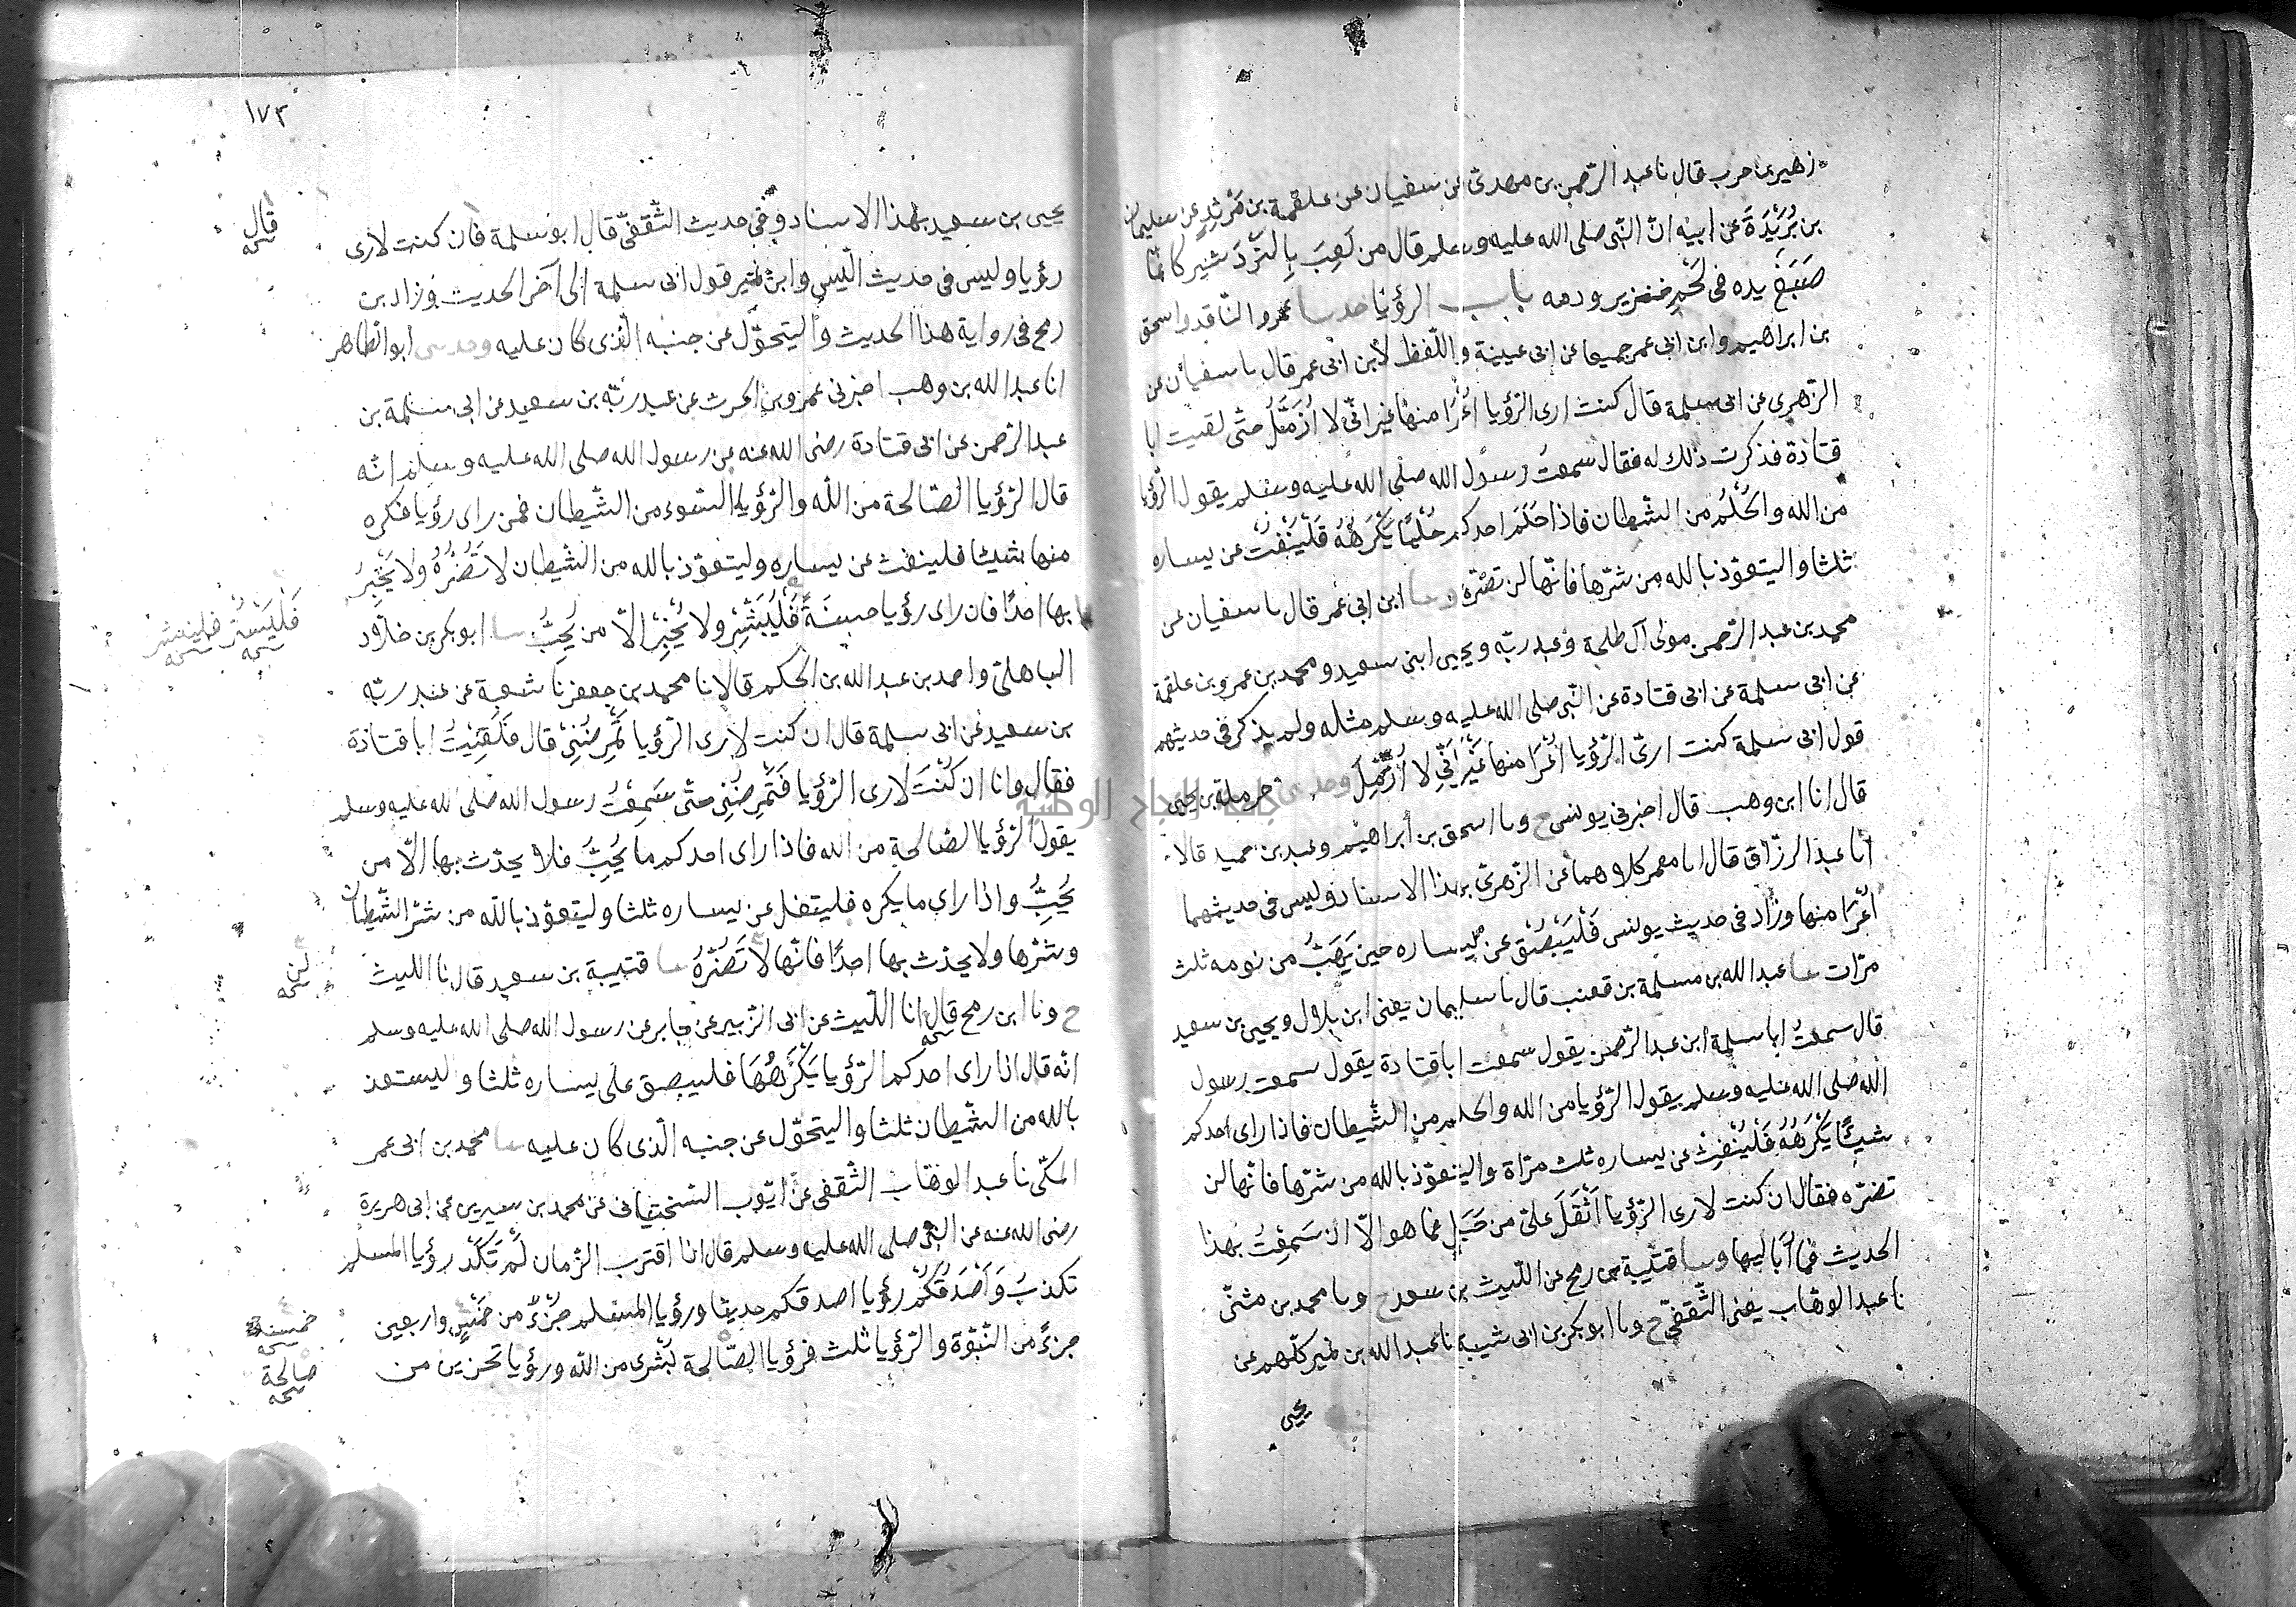 زهير بن حرب قال نا عبد الرحمن بن مهدى عن سفيان عن علقمة بن مَرْثَدٍ عن سليمان
بن بُرَيْدَةَ عن ابيه انّ النّبى صلى الله عليه وسلم قال من لَعِبَ بِالنَّرْدَشير كانّما
صَبَغَ يده فى لَحْمِ خنزير ودمه باب الرؤيا حدثنا عمرو النّاقد واسحق
بن ابراهيم وابن ابى عمر جميعا عن ابن عيينة واللّفظ لأبن ابى عمر قال نا سفيان عن
الزّهرى عن ابى سلمة قال كنت ارى الرّؤيا اُعْرَا منها غير انّى لا اُزَمَّلُ حتّى لقيت ابا
قتادة فذكرت ذلك له فقال سمعتُ رسول الله صلى الله عليه وسلم يقول الرّؤيا
من الله والحُلْمُ من الشيطان فاذا حَلَمَ احدكم حُلْمًا يَكْرَهُهُ فَلْيَنْفُثْ عن يساره
ثلثا واليتعوّذ بالله من شرّها فانّها لن تضرّه وحدثنا ابن ابى عمر قال نا سفيان عن
محمد بن عبد الرّحمن مولى آل طلحة وعبد ربّه ويحيى ابنى سعيد ومحمد بن عمرو بن علقمة
عن ابى سلمة عن ابى قتادة عن النّبى صلى الله عليه وسلم مثله ولم يذكر فى حديثهم
قول ابى سلمة كنت ارى الرّؤيا اُعْرَا منها غَيْرَ اَنّى لا اُزَمَّلُ وحدثنى حرملة بن يحيى
قال انا ابن وهب قال اخبرنى يونس ح ونا اسحق بن ابراهيم وعبد بن حميد قالا
انا عبد الرزّاق قال انا معمر كلاهما عن الزّهرىّ بهذا الاسناد وليس فى حديثهما
اعْرَا منها وزاد فى حديث يونس فَلْيَبْصُقْ عن يساره حين يَهَبُّ من نومه ثلث
مرّات حدثنا عبد الله بن مسلمة بن قعنب قال نا سليمان يعنى ابن بلال ويحيى بن سعيد
قال سمعتُ ابا سلمة ابن عبد الرّحمن يقول سمعت ابا قتادة يقول سمعت رسول
الله صلى الله عليه وسلم يقول الرّؤيا من الله والحلم من الشّيطان فاذا راى احدكم
شيئًا يَكْرَهُهُ فَلْيَنْفِثْ عن يساره ثلث مرّاة واليتعوّذ بالله من شرّها فانّها لن
تضرّه فقال ان كنت لارى الرّؤيا اَثْقَلَ علىّ من جَبَلٍ فما هو الّا ان سَمِعْتُ بهذا
الحديث فما اُباليها وحدثنا قتيبة بن رمح عن اللّيث بن سعد ح ونا محمد بن مثنّى
نا عبد الوهّاب يعنى الثّقفىّ ح ونا ابو بكر بن ابى شيبة نا عبد الله بن نمير كلّهم عن
يحيى
١٧٣
يحيى بن سعيد بهذا الاسناد وفى حديث الثّقفىّ قال ابو سلمة فان كنت لارى
قال
صح
رؤيا وليس فى حديث اللّيث وابن نمير قول ابى سلمة الى آخر الحديث وزاد بن
رمح فى رواية هذا الحديث واليتحوّل عن جنبه الّذى كان عليه وحدثنى ابو الطّاهر
انا عبد الله بن وهب اخبرنى عمرو بن الحرث عن عبد ربّه بن سعيد عن ابى سلمة بن
عبد الرّحمن عن ابى قتادة رضى الله عنه عن رسول الله صلى الله عليه وسلم انّه
قال الرّؤيا الصّالحة من الله والرّؤيا السّوء من الشّيطان فمن راى رؤيا فكره
منها شيئا فلينفث عن يساره وليتعوّذ بالله من الشّيطان لا تَضُرُّهُ ولا يُخْبِرُ
بها احدًا فان راى رؤيا حسنَةً فَلْيُبْشِرْ ولا يُخْبِرْ الّا من يُحِبُّ حدثنا ابو بكر بن خلّاد
فَلْيَسْتُر صح فلينشر صح
الباهلىّ واحمد بن عبد الله بن الحكم قالا نا محمد بن جعفر نا شعبة عن عبد ربّه
بن سعيد عن ابى سلمة قال ان كنت لارى الرّؤيا تُمْرِضُنِى قال فَلَقِيْتُ ابا قتادة
فقال وانا ان كُنْتُ لارى الرّؤيا فَتُمْرِضُنِى حتّى سَمِعْتُ رسول الله صلى الله عليه وسلم
يقول الرّؤيا الصّالحة من الله فاذا راى احدكم ما يُحِبُّ فلا يحدّث بها الّا من
يُحِبُّ واذا راى ما يكره فليتفل عن يساره ثلثا وليتعوّذ بالله من شرّ الشّيطان
وشرّها ولا يحدّث بها احدًا فانّها لا تَضُرُّهُ حدثنا قتيبة بن سعيد قال نا الليث
لن
صح
ح ونا ابن رمح قال انا اللّيث عن ابى الزّبير عن جابر عن رسول الله صلى الله عليه وسلم
انّه قال اذا راى احدكم الرّؤيا يَكْرَهُهَا فليبصق على يساره ثلثا واليستعذ
بالله من الشّيطان ثلثا واليتحوّل عن جنبه الّذى كان عليه حدثنا محمد بن ابى عمر
المكّى نا عبد الوهّاب الثّقفى عن ايّوب السّختيانى عن محمد بن سيرين عن ابى هريرة
رضى الله عنه عن النّبى صلى الله عليه وسلم قال اذا اقترب الزّمان لَمْ تَكَدْ رؤيا المسلم
تكذبُ وَاَصْدَقُكُمْ رؤيا اصدقكم حديثا ورؤيا المسلم جُزْءٌ من خَمْسٍ واربعين
خمسة
صح
جزءً من النّبوّة والرّؤيا ثلث فرؤيا الصّالحة بُشْرى من الله ورؤيا تحزين من
صالحة
صح